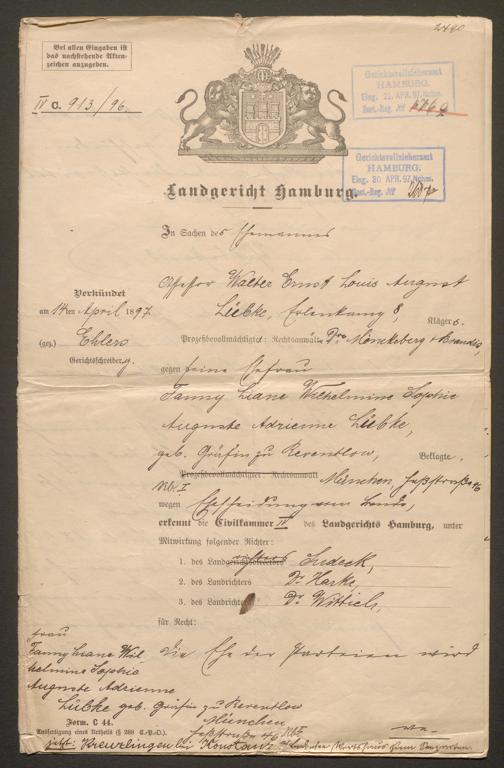 2480
Bei allen Eingaben ist
das nachstehende Akten-
zeichen anzugeben.
IV C. 913/96.
Gerichtsvollzieheramt
HAMBURG.
Eing. 22. APR. 97. Nchm.
Best.-Reg. №
Gerichtsvollzieheramt
HAMBURG.
Eing. 20 APR. 97. Nchm.
Best.-Reg. №
Landgericht Hamburg.
In Sachen des Ehemannes
Assessor Walter Ernst Louis August
Lübke, Erlenkamp 8,
Klägers.
Verkündet
am 14ten April 1897.
(gez.) Ehlers
Gerichtsschreiber.
Prozeßbevollmächtigte: Rechtsanwälte Dres Mönckeberg & Brandis,
gegen seine Ehefrau
Fanny Liane Wilhelmine Sophie
Auguste Adrienne Lübke,
geb. Gräfin zu Reventlow,
Beklagte.
Prozeßbevollmächtigter: Rechtsanwalt München, Heßstraße
wegen Ehescheidung vom Bande,
erkennt die Civilkammer IV des Landgerichts Hamburg, unter
Mitwirkung folgender Richter:
1. des Landgerichtsdirectors Sudeck,
2. des Landrichters Dr. Harke,
3. des Landrichters Dr. Wittich,
für Recht:
Die Ehe der Parteien wird
Frau
Fanny Liane Wil-
helmine Sophie
Auguste Adrienne
Lübke geb. Gräfin zu Reventlow
München
Heßstraße
Form. C 44.
Ausfertigung eines Urtheils (§ 288 C.-P.-O.).
jetzt: Kreuzlingen bei Konstanz